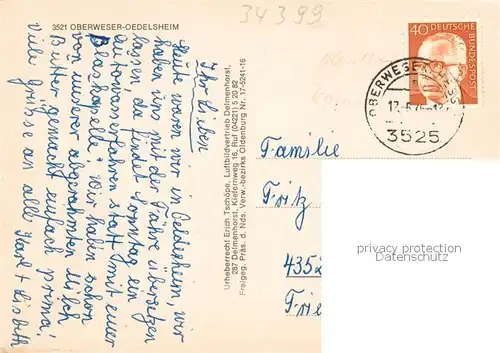 34399
3521 OBERWESER-OEDELSHEIM
Ihr Lieben
Heute waren wir in Oedelsheim, wir
haben uns mit der Fähre übersetzen
lassen, da findet Sonntag ein
autowasserfahren statt mit einer
Blaskapelle. Wir haben schon
von unserer abgerahmten Milch
Butter gemacht einfach prima!
Viele Grüsse an alle Karl + Lisbeth
Urheberrecht Erich Tschöpe, Luftbildvertrieb Delmenhorst,
287 Delmenhorst, Kiefernweg 16, Ruf (04221) 5 20 82
Freigeg. Präs. d. Nds. Verw.-bezirks Oldenburg Nr. 17-5241-16
40 DEUTSCHE
BUNDESPOST
OBERWESER
3525
Familie
Fritz
4352
privacy protection
Datenschutz